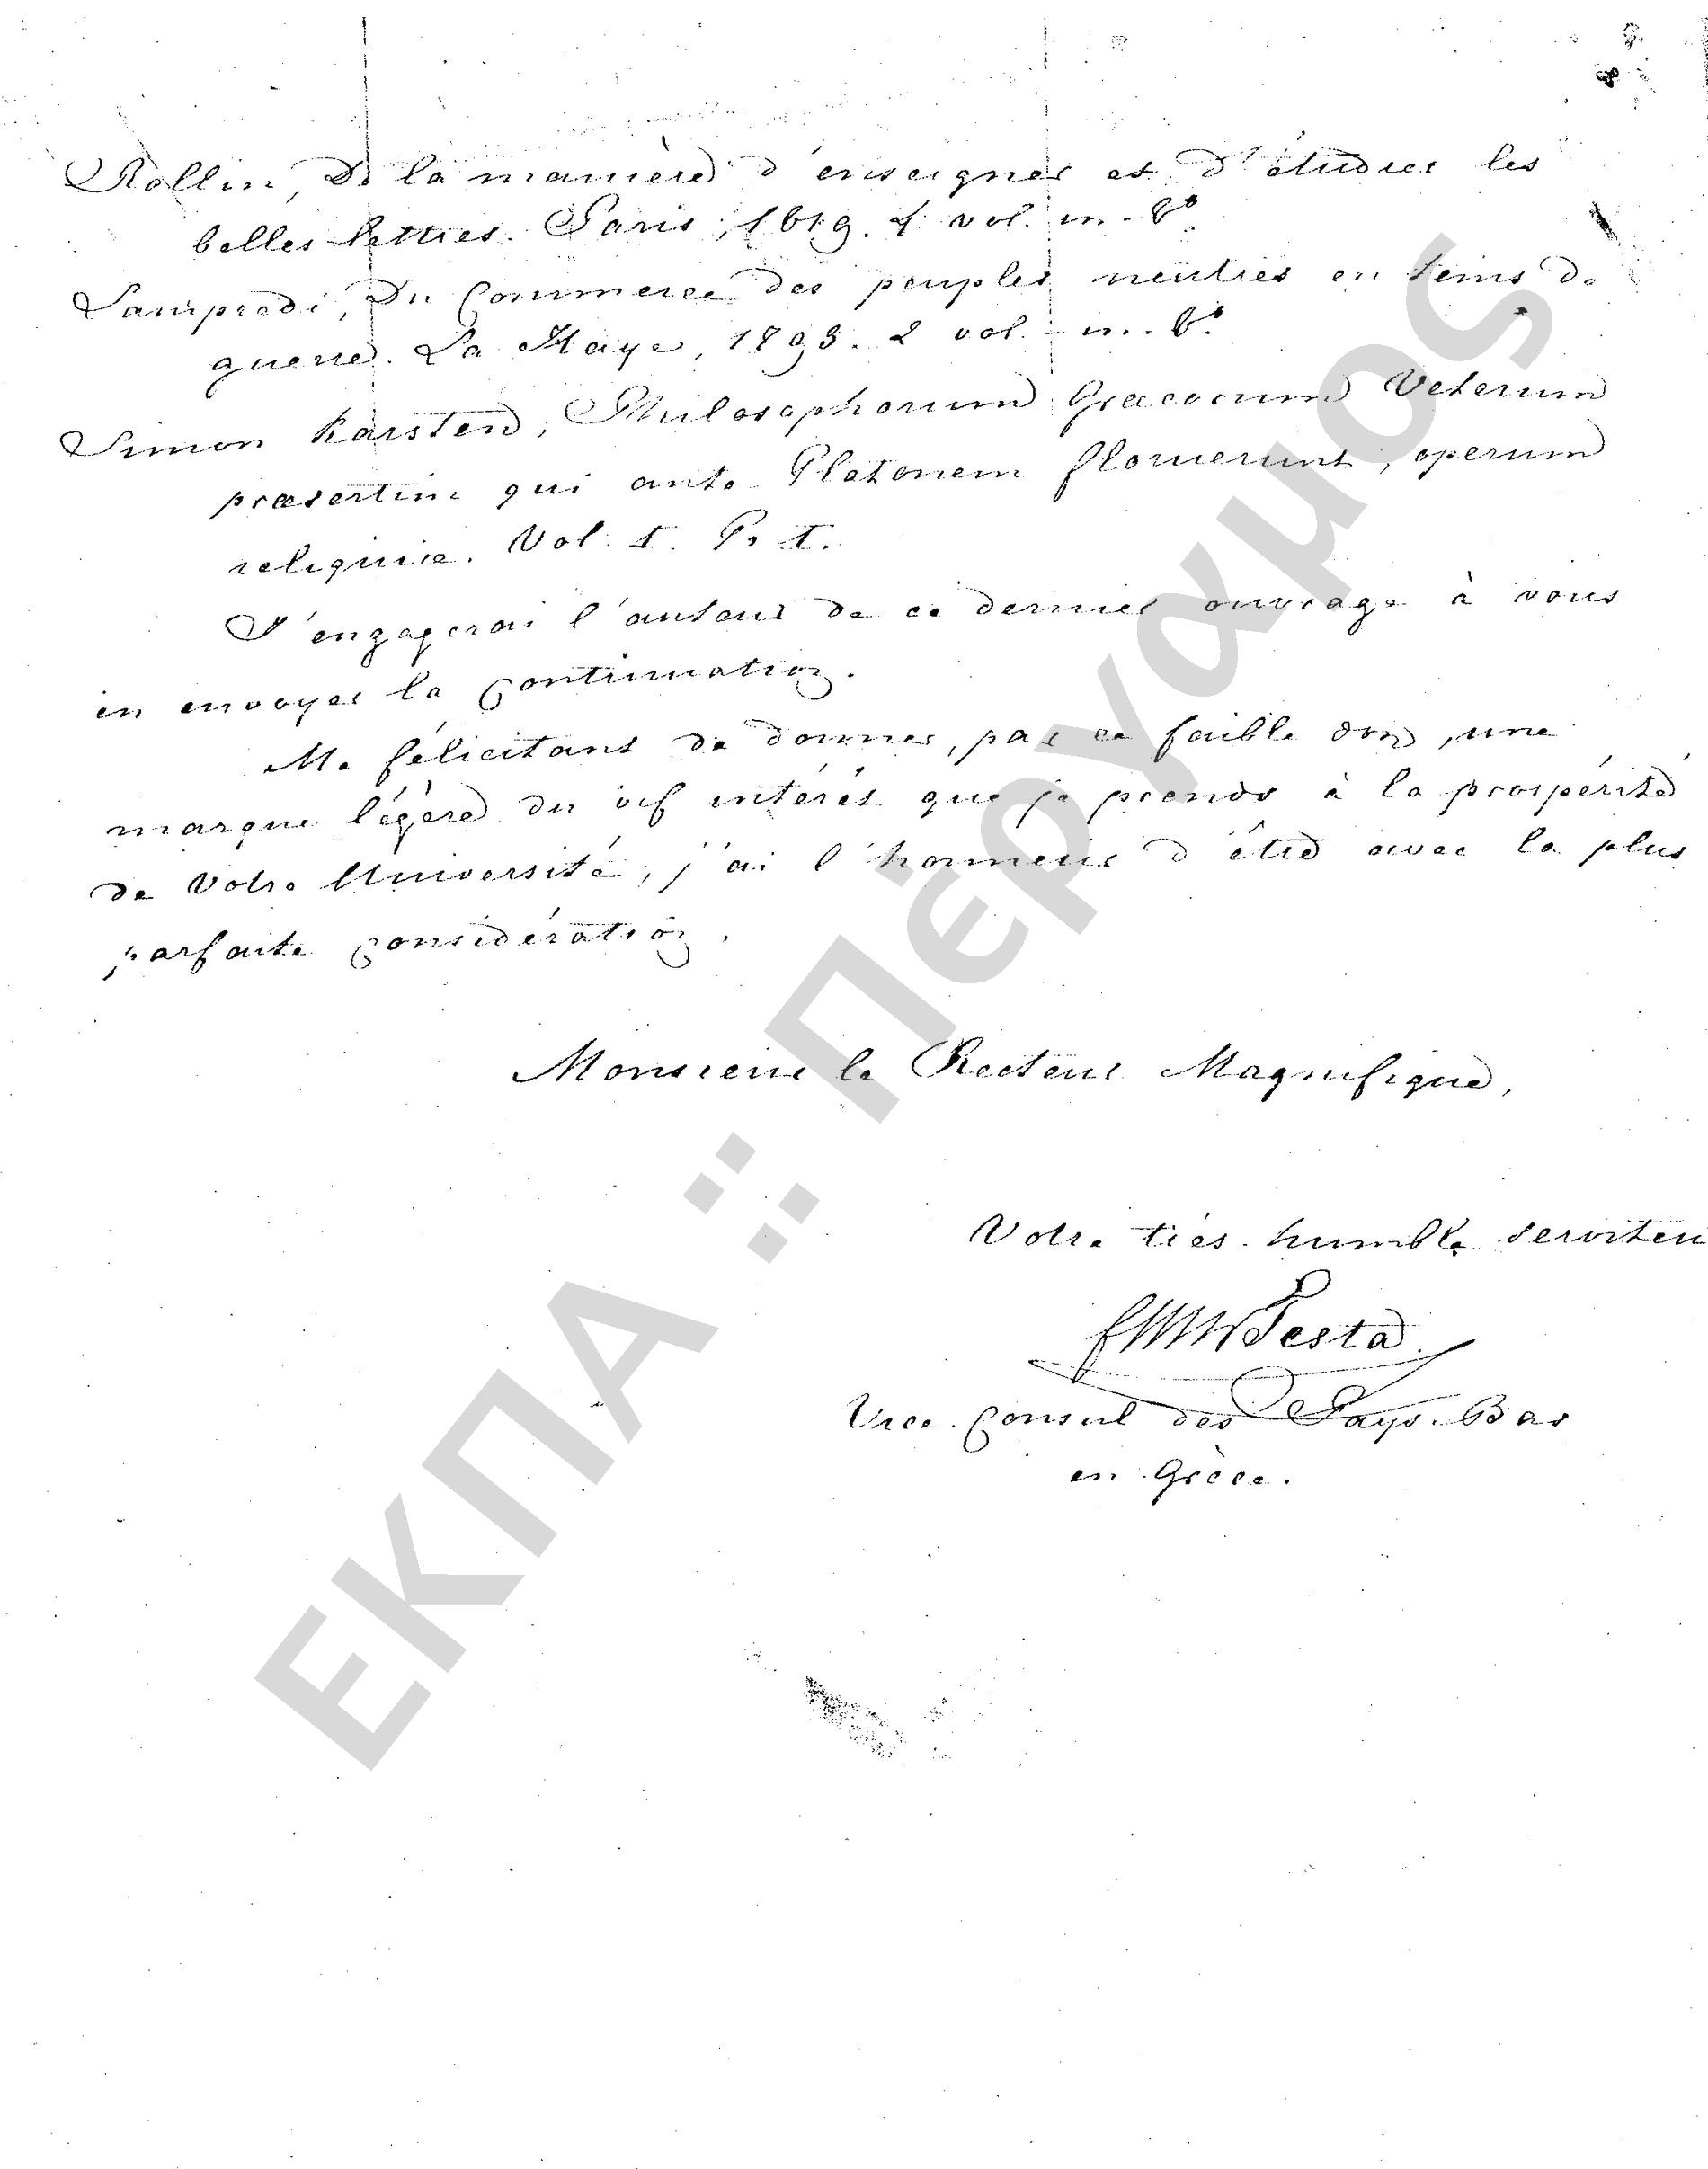 Rollin, De la manière d'enseigner et d'étudier les
belles lettres. Paris, 1819. 4 vol. in-8º.
Lampredi, Du Commerce des peuples neutres en tems de
guerre. La Haye, 1793. 2 vol. in-8º.
Simon Karsten, Philosophorum Græcorum Veterum
præsertim qui ante Platonem floruerunt, operum
reliquiæ. Vol. I. Ps I.
J'engagerai l'auteur de ce dernier ouvrage à vous
en envoyer la continuation.
Me félicitant de donner, par ce faible don, une
marque légère du vif intérêt que je prends à la prospérité
de Votre Université, j'ai l'honneur d'être avec la plus
parfaite considération,
Monsieur le Recteur Magnifique,
Votre très-humble serviteu
Testa
Vice-Consul des Pays-Bas
en Grèce.
ΕΚΠΑ :: Πέργαμος